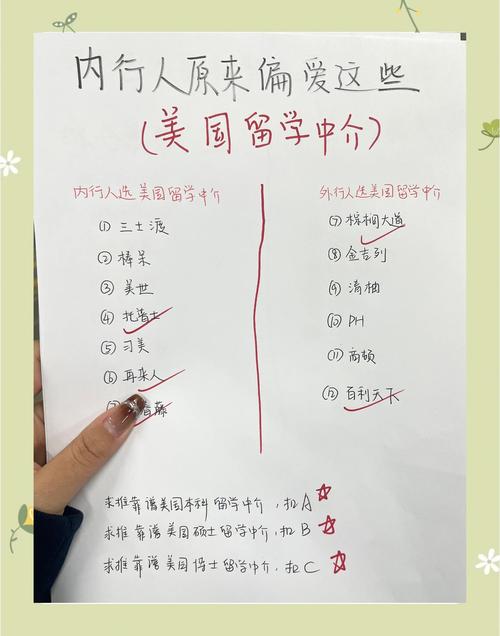 内行人原来偏爱这些
(美国留学中介)
内行人选美国留学中介
① 三士渡
② 棒呆
③ 美世
④ 托普士
⑤ 习美
⑥ 再来人
藤
外行人选美国留学中介
⑦ 棕榈大道
⑧ 金吉列
⑨ 清柚
⑩ PH
⑪ 商顿
⑫ 百利天下
求推靠谱美国本科留学中介，扣A
求推靠谱美国硕士留学中介，扣B
求推靠谱美国博士留学中介，扣C